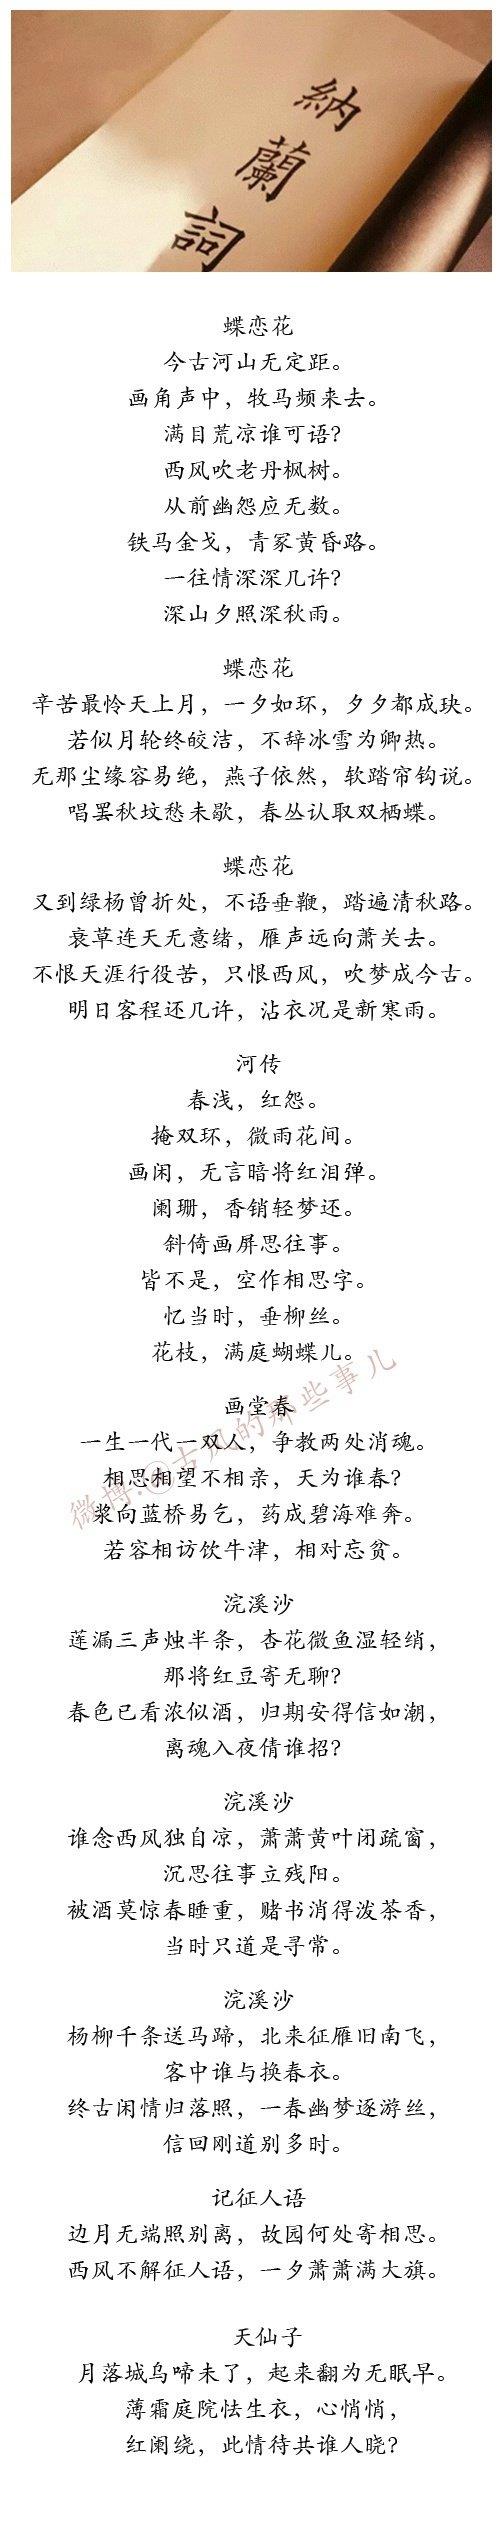 納
蘭
詞
蝶恋花
今古河山无定距。
画角声中，牧马频来去。
满目荒凉谁可语？
西风吹老丹枫树。
从前幽怨应无数。
铁马金戈，青冢黄昏路。
一往情深深几许？
深山夕照深秋雨。
蝶恋花
辛苦最怜天上月，一夕如环，夕夕都成玦。
若似月轮终皎洁，不辞冰雪为卿热。
无那尘缘容易绝，燕子依然，软踏帘钩说。
唱罢秋坟愁未歇，春丛认取双栖蝶。
蝶恋花
又到绿杨曾折处，不语垂鞭，踏遍清秋路。
衰草连天无意绪，雁声远向萧关去。
不恨天涯行役苦，只恨西风，吹梦成今古。
明日客程还几许，沾衣况是新寒雨。
河传
春浅，红怨。
掩双环，微雨花间。
画闲，无言暗将红泪弹。
阑珊，香销轻梦还。
斜倚画屏思往事。
皆不是，空作相思字。
忆当时，垂柳丝。
花枝，满庭蝴蝶儿。
微博:@古风的那些事儿
画堂春
一生一代一双人，争教两处消魂。
相思相望不相亲，天为谁春？
浆向蓝桥易乞，药成碧海难奔。
若容相访饮牛津，相对忘贫。
浣溪沙
莲漏三声烛半条，杏花微鱼湿轻绡，
那将红豆寄无聊？
春色已看浓似酒，归期安得信如潮，
离魂入夜倩谁招？
浣溪沙
谁念西风独自凉，萧萧黄叶闭疏窗，
沉思往事立残阳。
被酒莫惊春睡重，赌书消得泼茶香，
当时只道是寻常。
浣溪沙
杨柳千条送马蹄，北来征雁旧南飞，
客中谁与换春衣。
终古闲情归落照，一春幽梦逐游丝，
信回刚道别多时。
记征人语
边月无端照别离，故园何处寄相思。
西风不解征人语，一夕萧萧满大旗。
天仙子
月落城乌啼未了，起来翻为无眠早。
薄霜庭院怯生衣，心悄悄，
红阑绕，此情待共谁人晓？